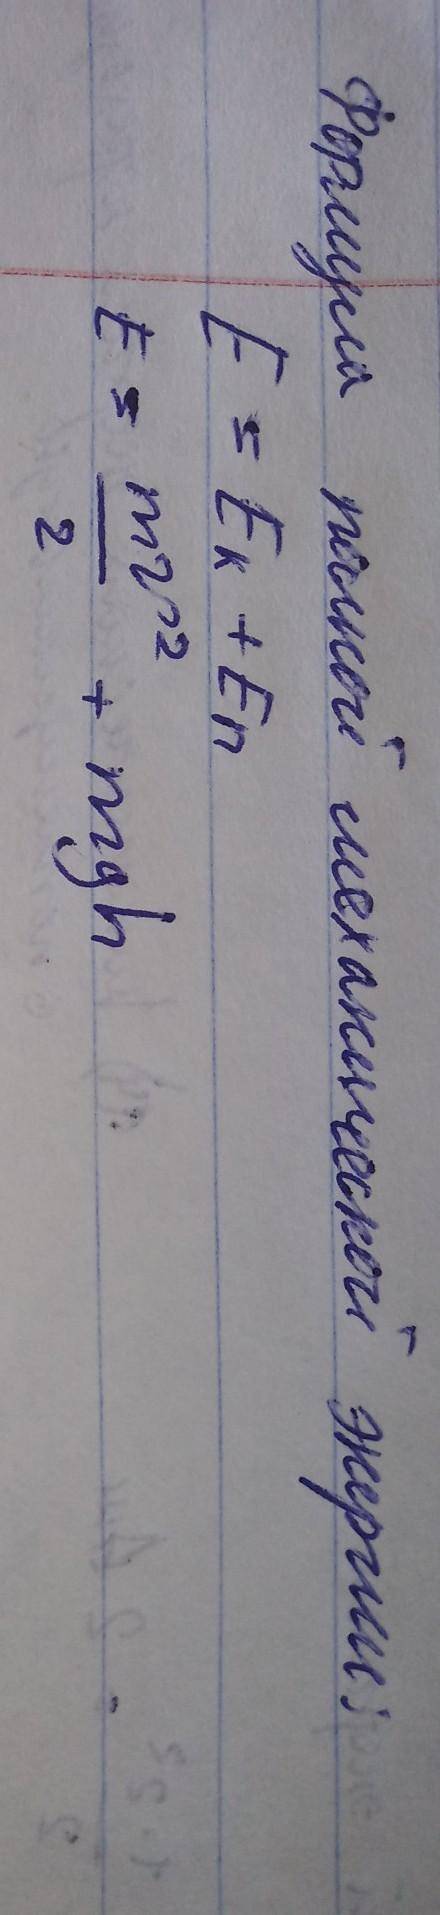 Формула полной механической энергии:
E = Eк + Eп
E = mv²/2 + mgh